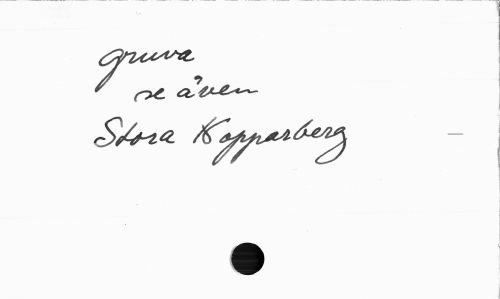 gruva
se även
Stora Kopparberg